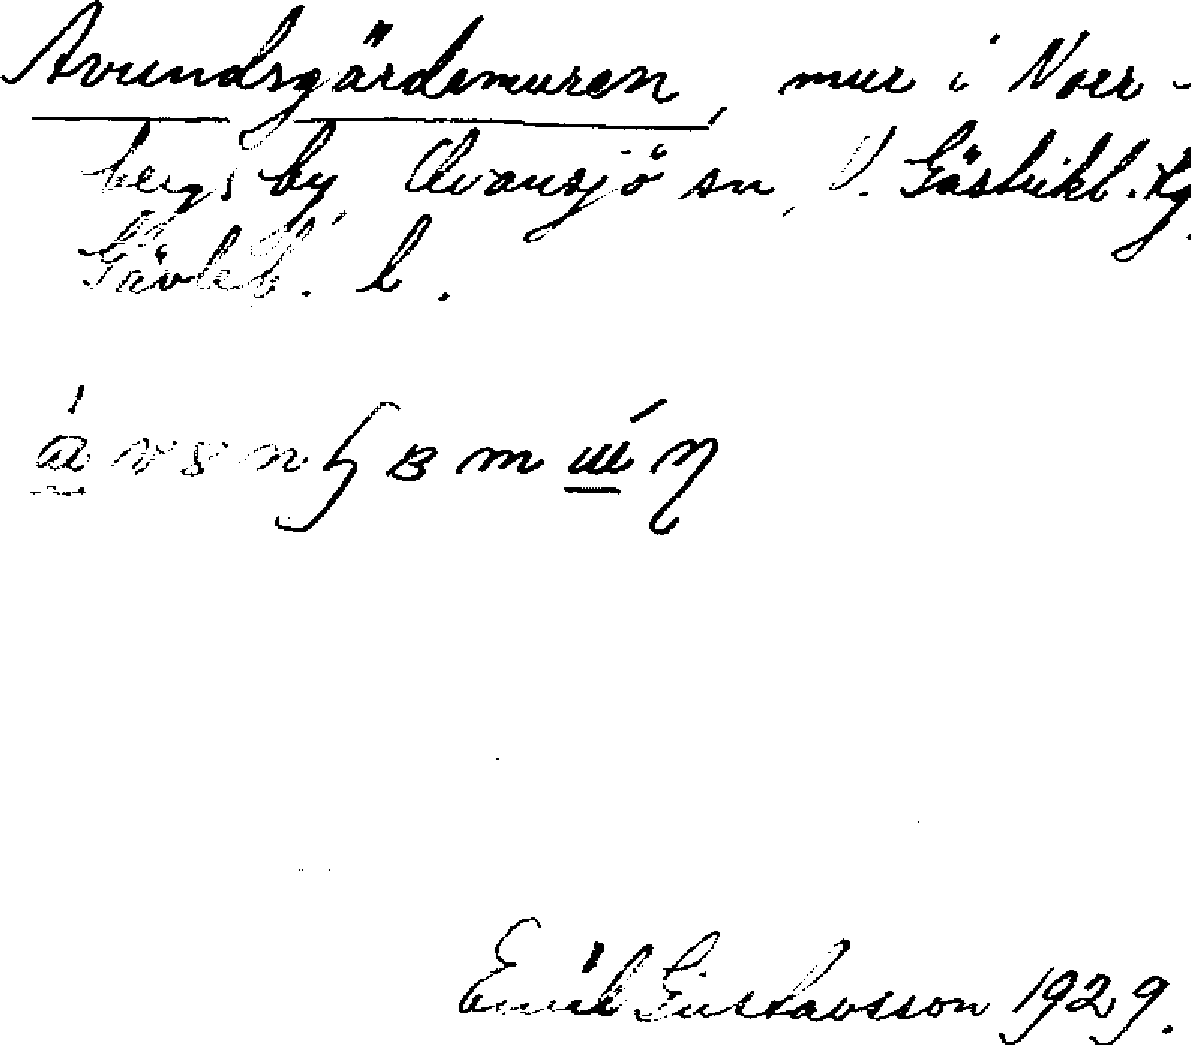 Avundsgärdemuren, mur i Norr-
bergs by, Ovansjö sn, V. Gästrikl. tg.
Gävleb. l.
Erik Gustavsson 1929.